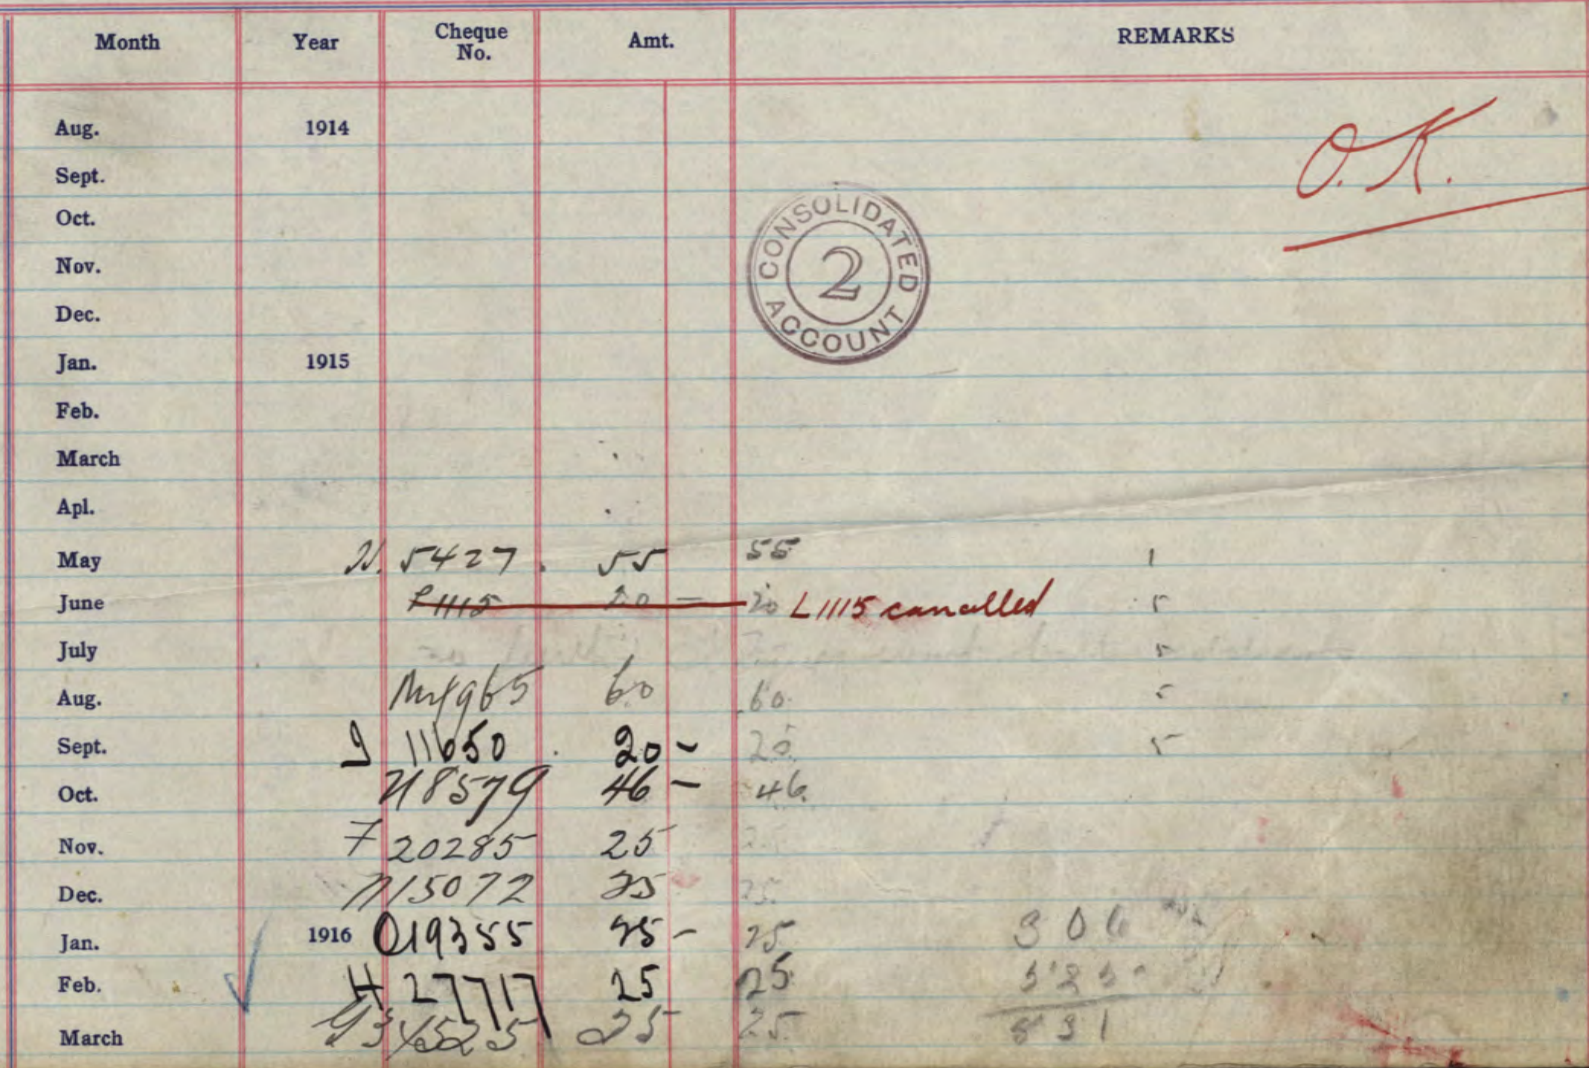 Month Year Cheque No. Amt. REMARKS
Aug. 1914
O.K.
Sept.
Oct.
CONSOLIDATED ACCOUNT 2
Nov.
Dec.
Jan. 1915
Feb.
March
Apl.
May 5427 55 55 1
June 1115 20 – 20 L1115 cancelled 5
July 5
Aug. 60 60 5
Sept. 11650 20 – 20 5
Oct. 18579 46 – 46
Nov. F 20285 25 25
Dec. 15072 25 25
Jan. 1916 O19355 25 – 25
Feb. H 27717 25 25
March 25 25